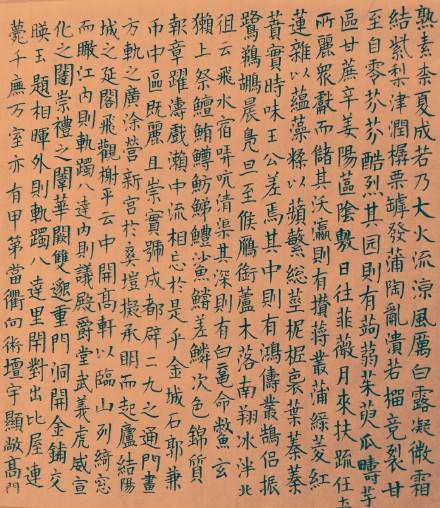 熟素柰夏成若乃大火流涼風厲白露凝微霜
結紫梨津潤樼栗罅發蒲陶亂潰若榴竞裂甘
至自零芬芬酷烈其园則有蒟蒻茱萸瓜疇芋
區甘蔗辛姜陽蓲陰敷日往菲薇月來扶疏任土
所麗眾獻而儲其沃瀛則有攢蔣叢蒲綠菱紅
蓮雜以蘊藻糅以蘋蘩総莖柅柅裛葉蓁蓁
蕡實時味王公羞焉其中則有鴻儔鵠侶振
鷺鵜鶘晨鳧旦至候鴈銜蘆木落南翔冰泮北
徂云飛水宿哢吭清渠其深則有白黿命鱉玄
獺上祭鱣鮪鱒魴鮷鱧魦鱨差鱗次色錦質
報章躍濤戲瀨中流相忘於是乎金城石郭兼
帀中區既麗且崇實號成都辟二九之通門畫
方軌之廣涂營新宮於爽塏擬承明而起廬結陽
城之延閣飛觀榭乎云中開高軒以臨山列綺窓
而瞰江内則軌躅八達内則議殿爵堂武義虎威宣
化之闥崇禮之闈華闕雙邈重門洞開金鋪交
暎玉題相暉外則軌躅八達里閈對出比屋連
甍千廡万室亦有甲第當衢向術壇宇顯敞高門